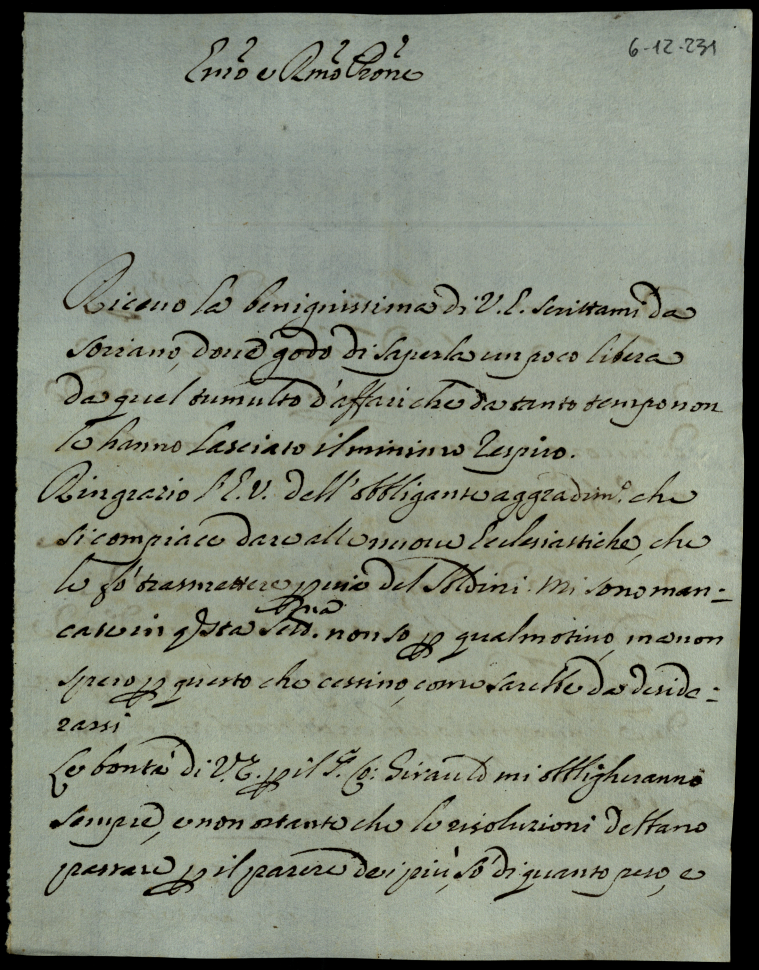 6-12-231
Em̃o e Rm̃o Prone
Ricevo la benignissima di V. E. scrittami da
Soriano, dove godo di saperla un poco libera
da quel tumulto d'affari che da tanto tempo non
le hanno lasciato il minimo respiro.
Ringrazio l'E.V. dell'obbligante aggradimo. che
si compiace dare alle nuove Ecclesiastiche, che
le fò trasmettere p via del Soldini. Mi sono man=
cate in qsta Settna. non so p qual motivo, ma non
spero p questo che cessino, come sarebbe da deside=
rarsi
Le bontà di V.E. p il Sr. Co: Giraud mi obbligheranno
sempre, e non ostante che le risoluzioni debbano
passare p il parere dei più, sò di quanto peso, e